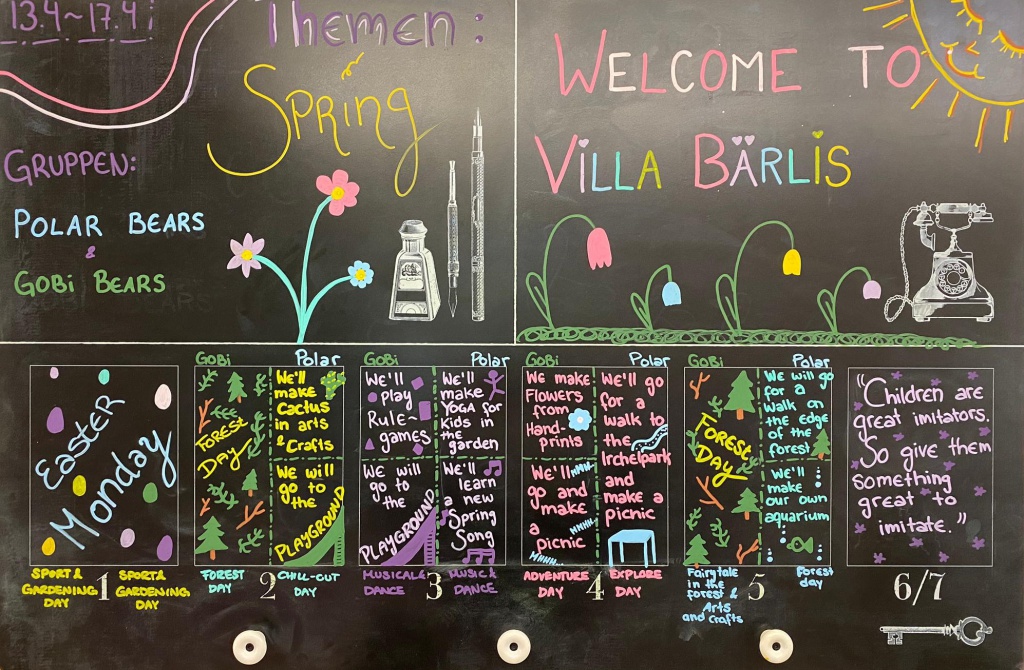 13.4~17.4 :
Themen:
Spring
GRUPPEN:
POLAR BEARS
&
GOBI BEARS
WELCOME TO
VILLA BÄRLIS
EASTER
Monday
SPORT &
GARDENING
DAY
1
SPORT &
GARDENING
DAY
Gobi
Polar
FOREST
DAY
We'll
make
Cactus
in arts
& Crafts
We will
go to
the
PLAYGROUND
FOREST
DAY
2
CHILL-OUT
DAY
Gobi
Polar
We'll
play
Rule-
games
We will
go to
the
PLAYGROUND
We'll
make
YOGA for
Kids in
the
garden
We'll
learn
a new
Spring
Song
MUSICAL &
DANCE
3
MUSIC &
DANCE
Gobi
Polar
We make
Flowers
from
Hand-
prints
We'll
go and
make
a
picnic
We'll go
for a
walk to
the
Irchelpark
and
make a
picnic
ADVENTURE
DAY
4
EXPLORE
DAY
Gobi
Polar
FOREST
DAY
We will go
for a
walk on
the edge
of the
forest
We'll
make
our own
aquarium
Fairytale
in the
forest &
Arts
and Crafts
5
Forest
day
"Children are
great imitators.
So give them
something
great to
imitate."
6/7